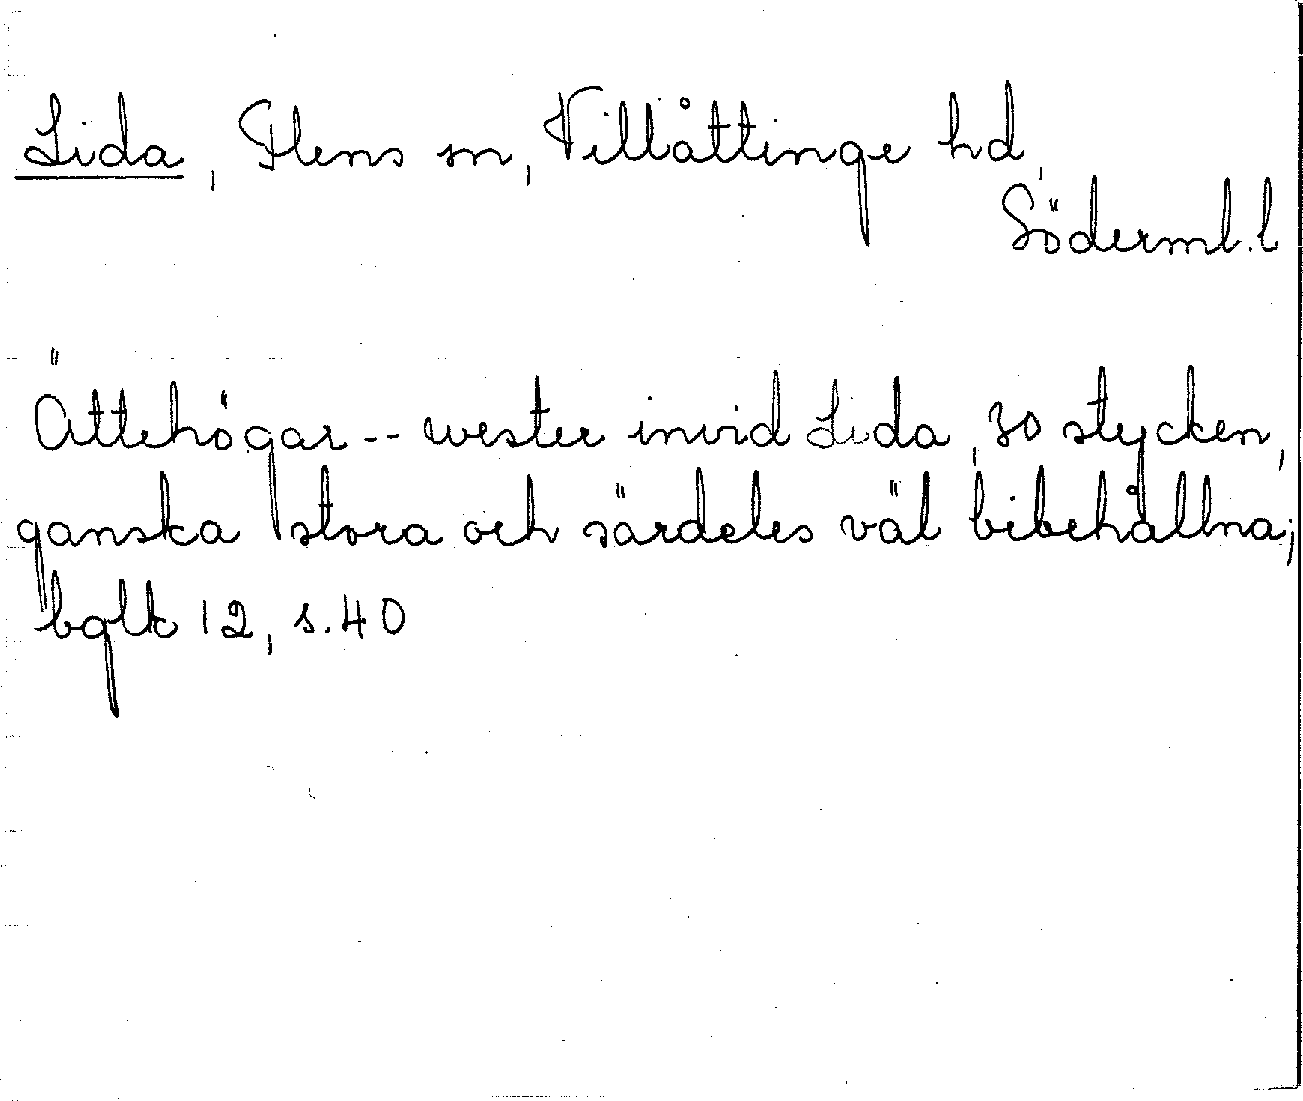 Lida, Flens sn, Villåttinge hd,
Söderml.l
Ättehögar -- wester invid Lida, 30 stycken,
ganska stora och särdeles väl bibehållna;
bglk 12, s.40